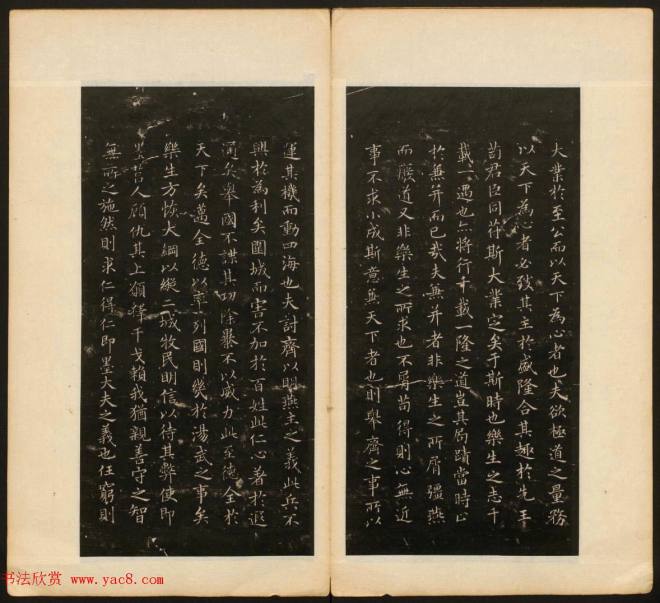 大業於至公而以天下為心者也夫欲極道之量務
以天下為心者必致其主於盛隆合其趣於先王
苟君臣同符斯大業定矣于斯時也樂生之志千
載一遇也亦將行千載一隆之道豈其局蹟當時止
於兼并而已哉夫兼并者非樂生之所屑彊燕
而廢道又非樂生之所求也不屑苟得則心無近
事不求小成斯意兼天下者也則舉齊之事所以
運其機而動四海也夫討齊以明燕主之義此兵不
興於為利矣圍城而害不加於百姓此仁心著於遐
邇矣舉國不謀其功除暴不以威力此至德全於
天下矣邁全德以率列國則幾於湯武之事矣
樂生方恢大綱以縱二城牧民明信以待其弊使即
墨莒人顧仇其上願釋干戈賴我猶親善守之智
無所之施然則求仁得仁即墨大夫之義也任窮則
书法欣赏 www.yac8.com